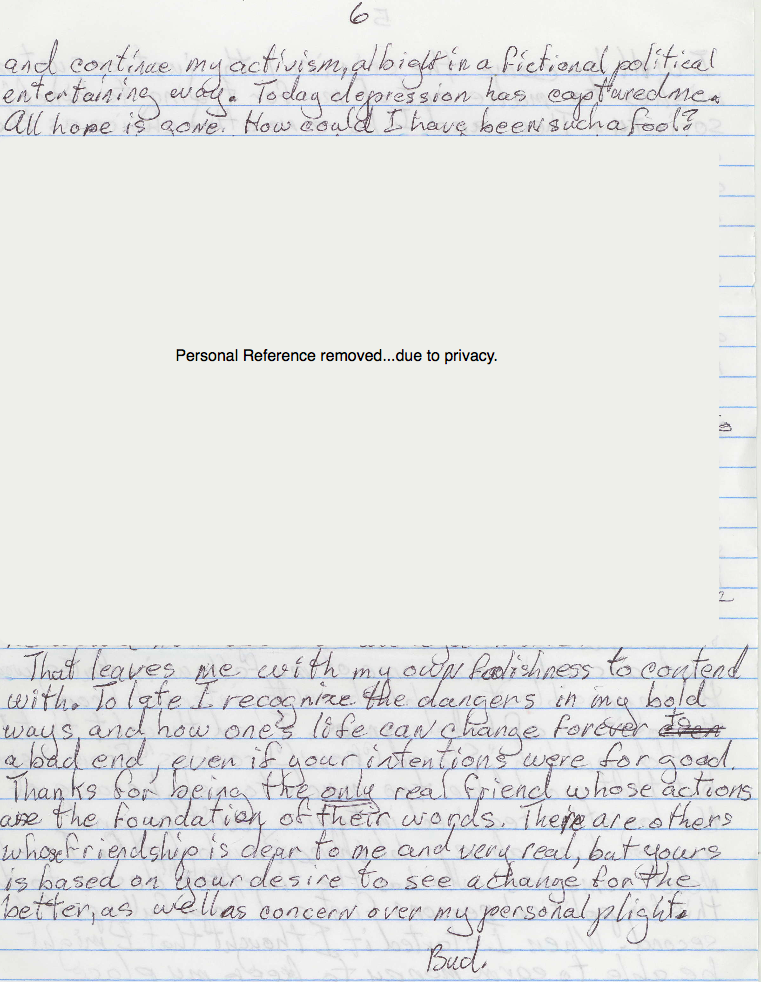 6
and continue my activism, albight in a fictional political
entertaining way. Today depression has captured me.
All hope is gone. How could I have been such a fool?
Personal Reference removed...due to privacy.
That leaves me with my own foolishness to contend
with. To late I recognize the dangers in my bold
ways, and how one's life can change forever to
a bad end, even if your intentions were for good.
Thanks for being the only real friend whose actions
are the foundation of their words. There are others
whose friendship is dear to me and very real, but yours
is based on your desire to see a change for the
better, as well as concern over my personal plight.
Bud.